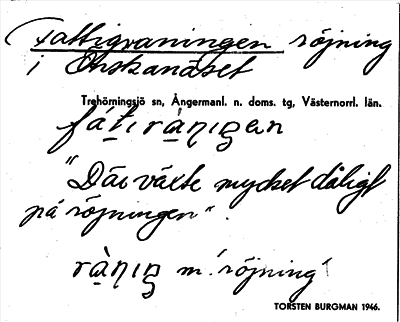 (Fattigraningen röjning
i Önskanäset
Trehörningsjö sn, Ångermanl. n. doms. tg, Västernorrl. län.
"Där växte mycket dåligt
på röjningen".
m. 'röjning'
TORSTEN BURGMAN 1946.